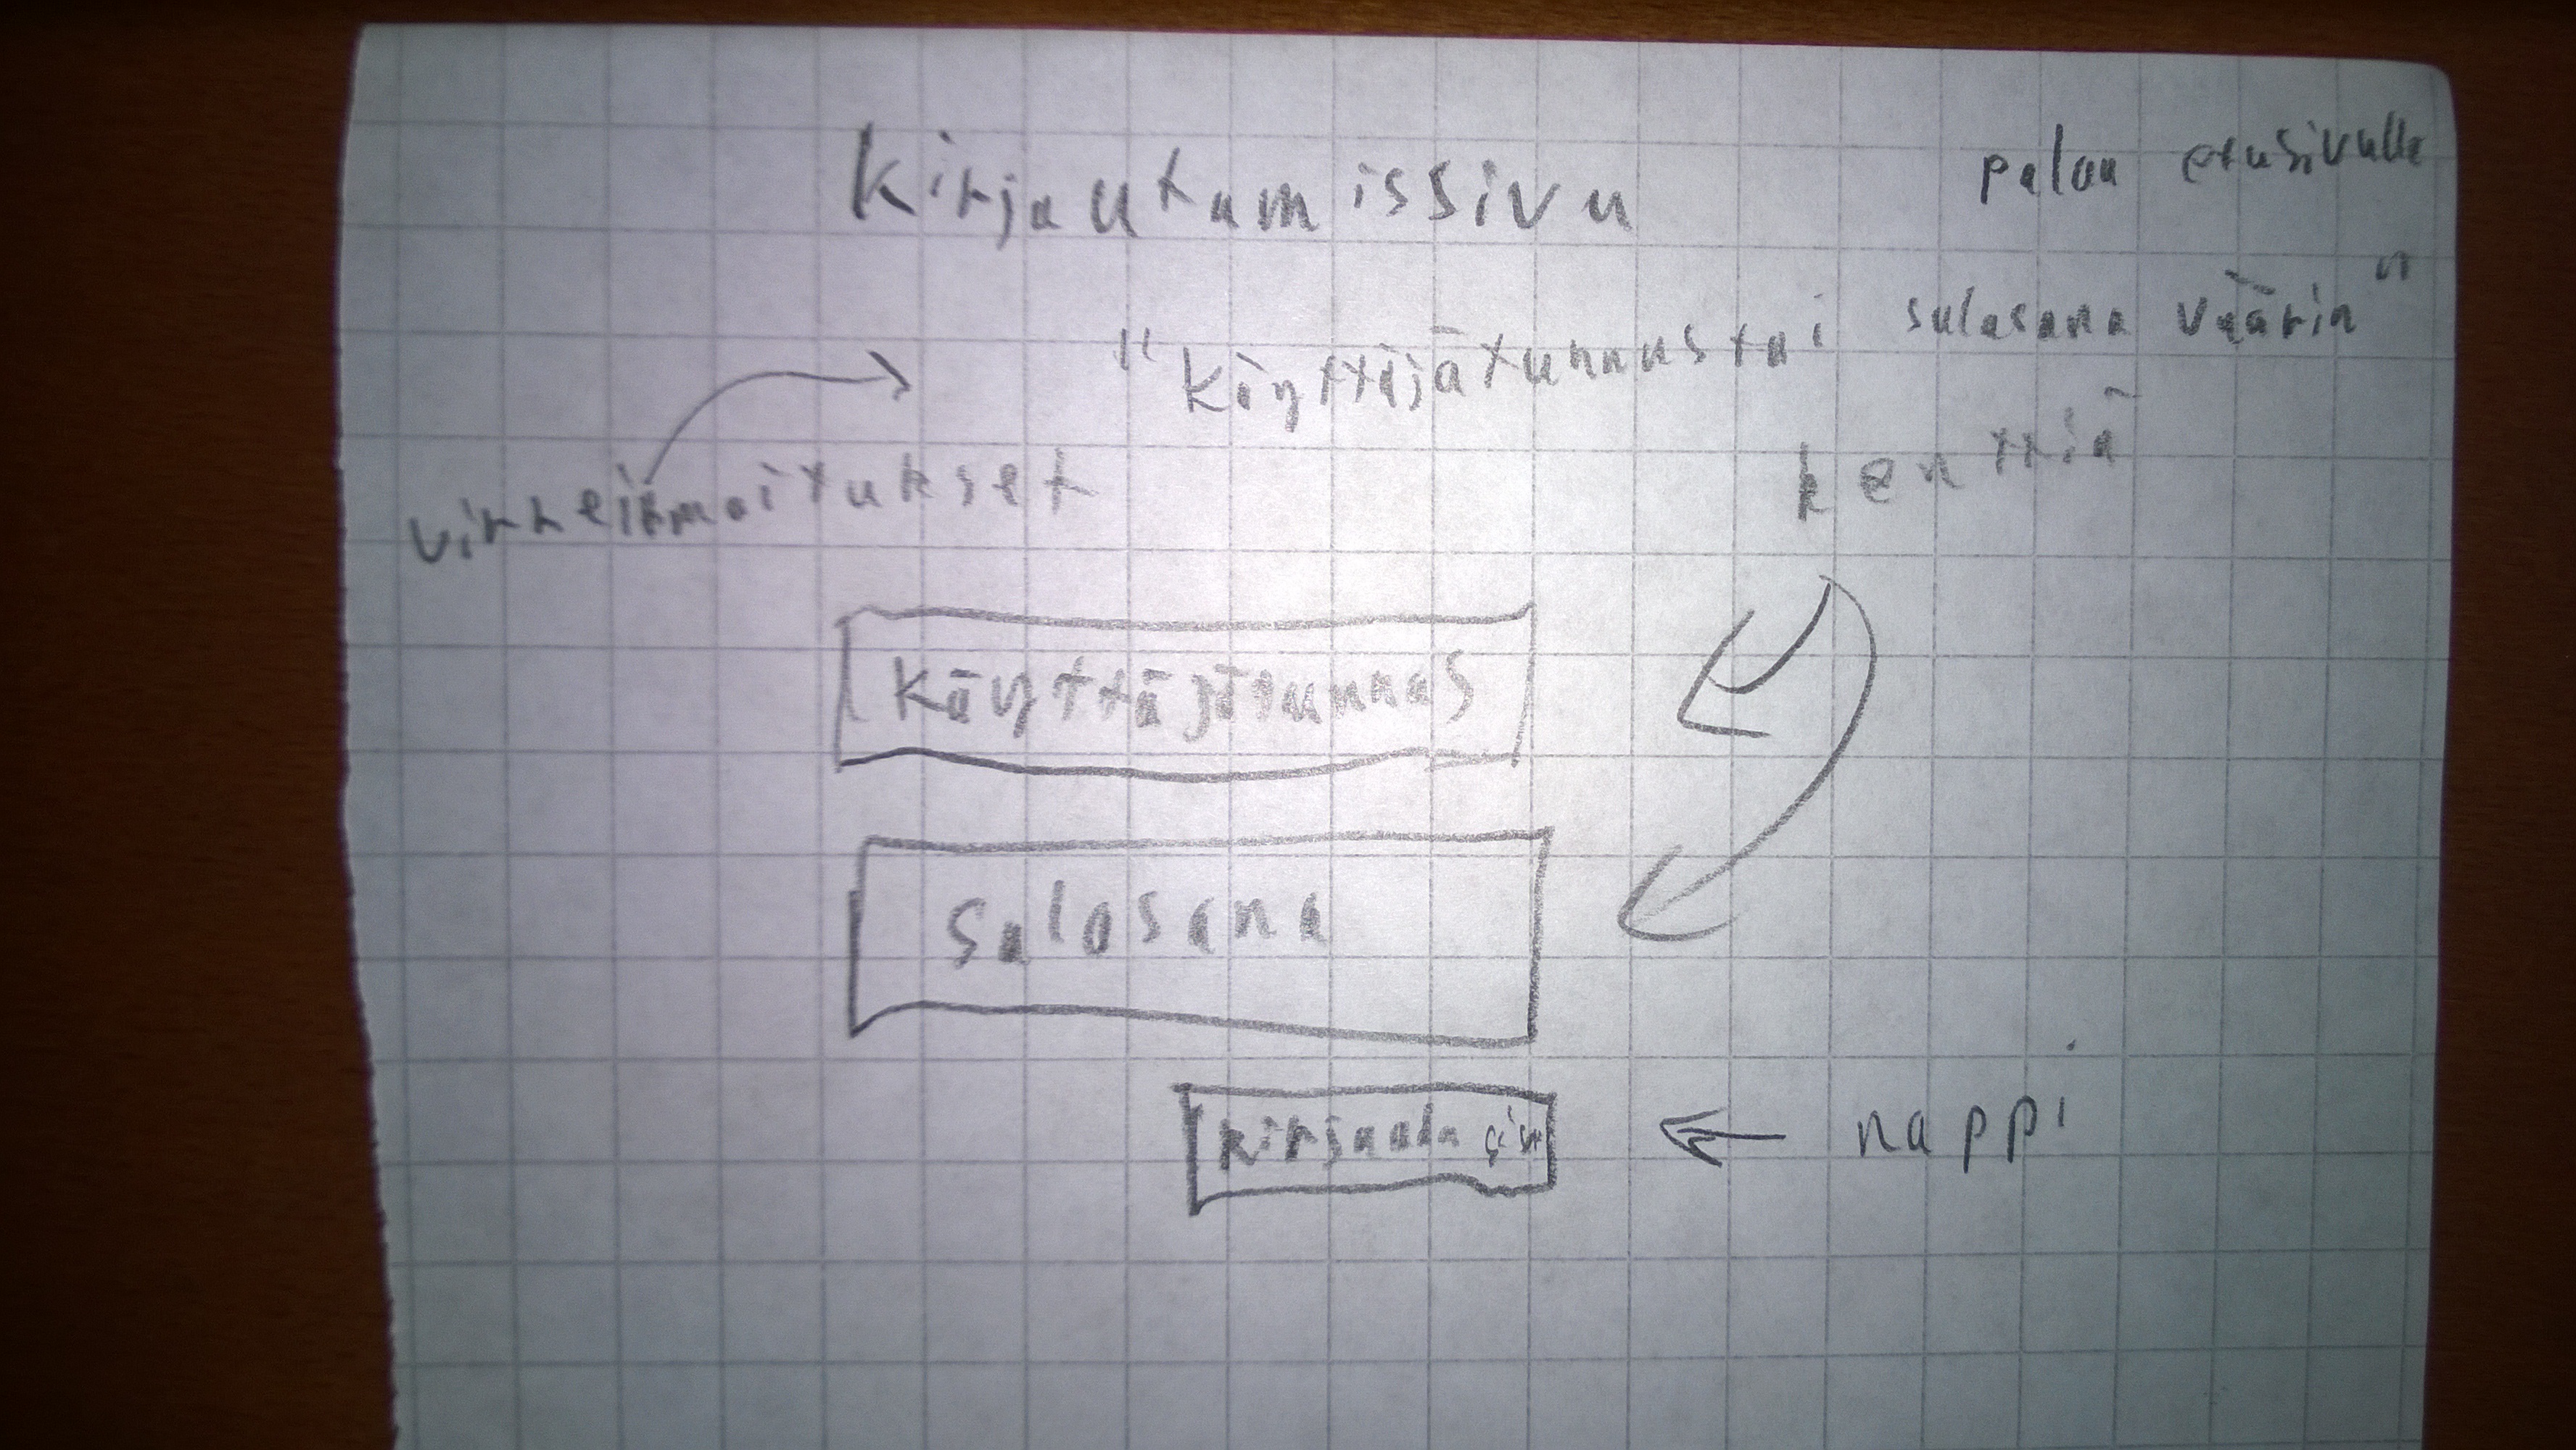 Kirjautumissivu
palaa etusivulle
"Käyttäjätunnus tai salasana väärin"
virheilmoitukset
kenttiä
Käyttäjätunnus
Salasana
kirjaudu sis
nappi